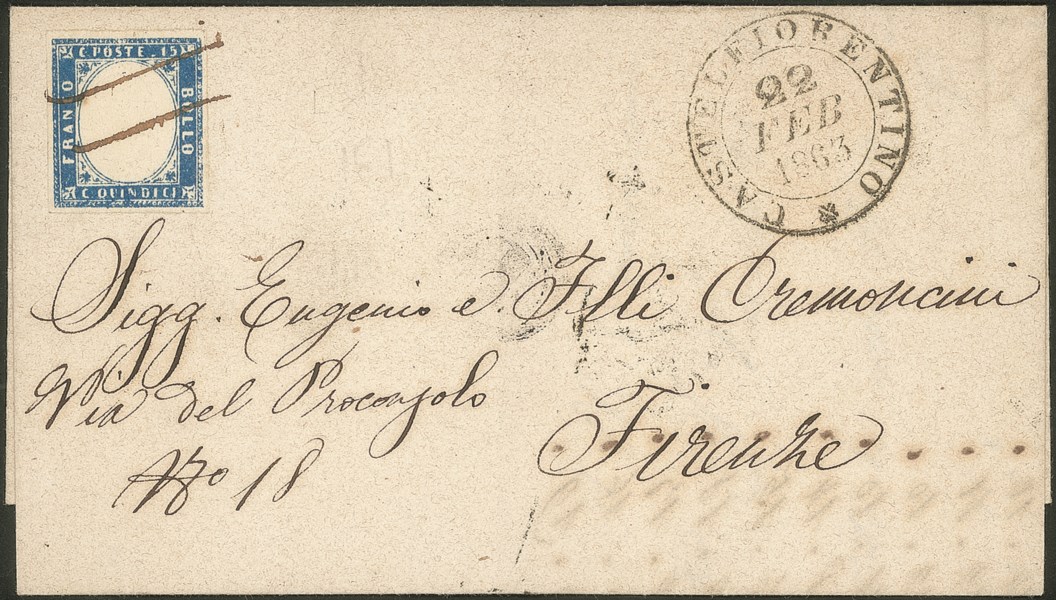 C. POSTE. 15
FRANCO
BOLLO
C. QUINDICI
CASTELFIORENTINO
22
FEB
1863
Sigg. Eugenio e Flli Cremoncini
Via del Proconsolo
No 18
Firenze